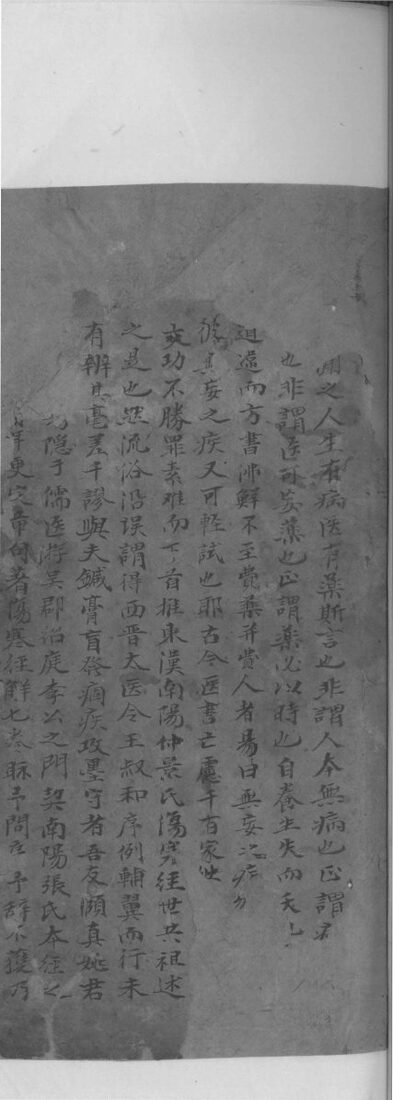 用之人生有病医有薬斯言也非謂人本無病也正謂有
也非謂医可妄薬也正謂薬必以時也自養生失而夭
迥遠而方書沛鮮不至費薬并費人者易曰无妄之疾勿
其妄之疾又可輕試也耶古今医書亡慮千百家
或功不勝罪素难而下首推東漢南陽仲景氏傷寒經世共祖述
之是也然流俗沿误謂得西晋太医令王叔和序例輔翼而行未
有辨其毫差千謬與夫鍼膏肓發痼疾攻墨守者吾友頤真姚君
隐于儒医游吴郡伯庭李公之門契南陽張氏本經之
更定章句著傷寒經解七卷眎予問序予辞不獲乃